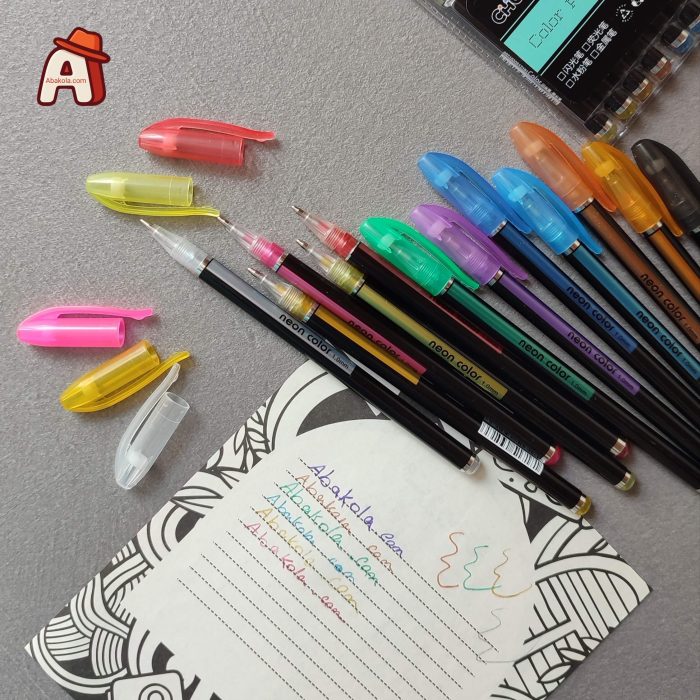 Abakola.com
Color
□闪光笔 □荧光笔
□水粉笔 □金属笔
neon color 1.0mm
neon color 1.0mm
neon color 1.0mm
neon color 1.0mm
neon color 1.0mm
neon color
neon color
neon color
Abakola.com
Abakola.com
Abakola.com
Abakola.com
Abakola.com
Abakola.com